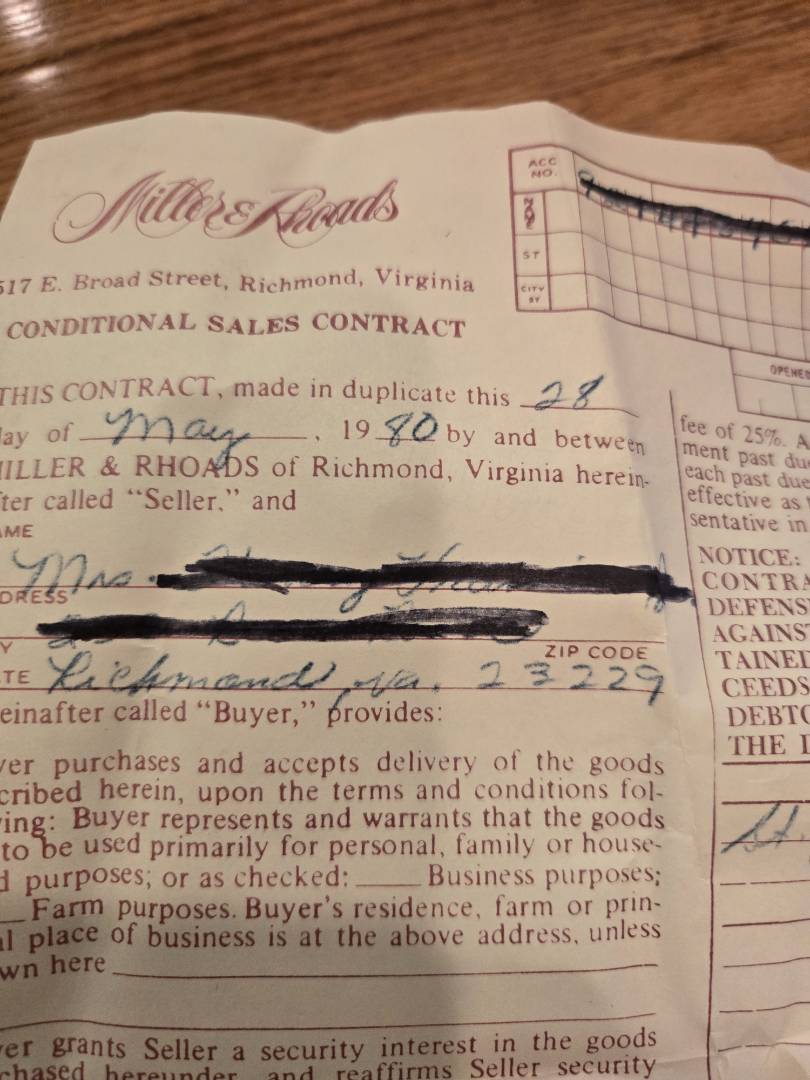 Miller & Rhoads
517 E. Broad Street, Richmond, Virginia
CONDITIONAL SALES CONTRACT
THIS CONTRACT, made in duplicate this 28
day of May, 1980 by and between
MILLER & RHOADS of Richmond, Virginia herein-
fter called "Seller," and
AME
Mrs.
DRESS
Y
ZIP CODE
TE Richmond, Va. 23229
einafter called "Buyer," provides:
yer purchases and accepts delivery of the goods
cribed herein, upon the terms and conditions fol-
ing: Buyer represents and warrants that the goods
to be used primarily for personal, family or house-
d purposes; or as checked: ____ Business purposes;
__ Farm purposes. Buyer's residence, farm or prin-
al place of business is at the above address, unless
wn here
yer grants Seller a security interest in the goods
chased hereunder, and reaffirms Seller security
ACC NO.
NAME
ST
CITY
ST
OPENED
fee of 25%. A
ment past du
each past due
effective as
sentative in
NOTICE:
CONTRA
DEFENS
AGAINST
TAINED
CEEDS
DEBTO
THE
St.